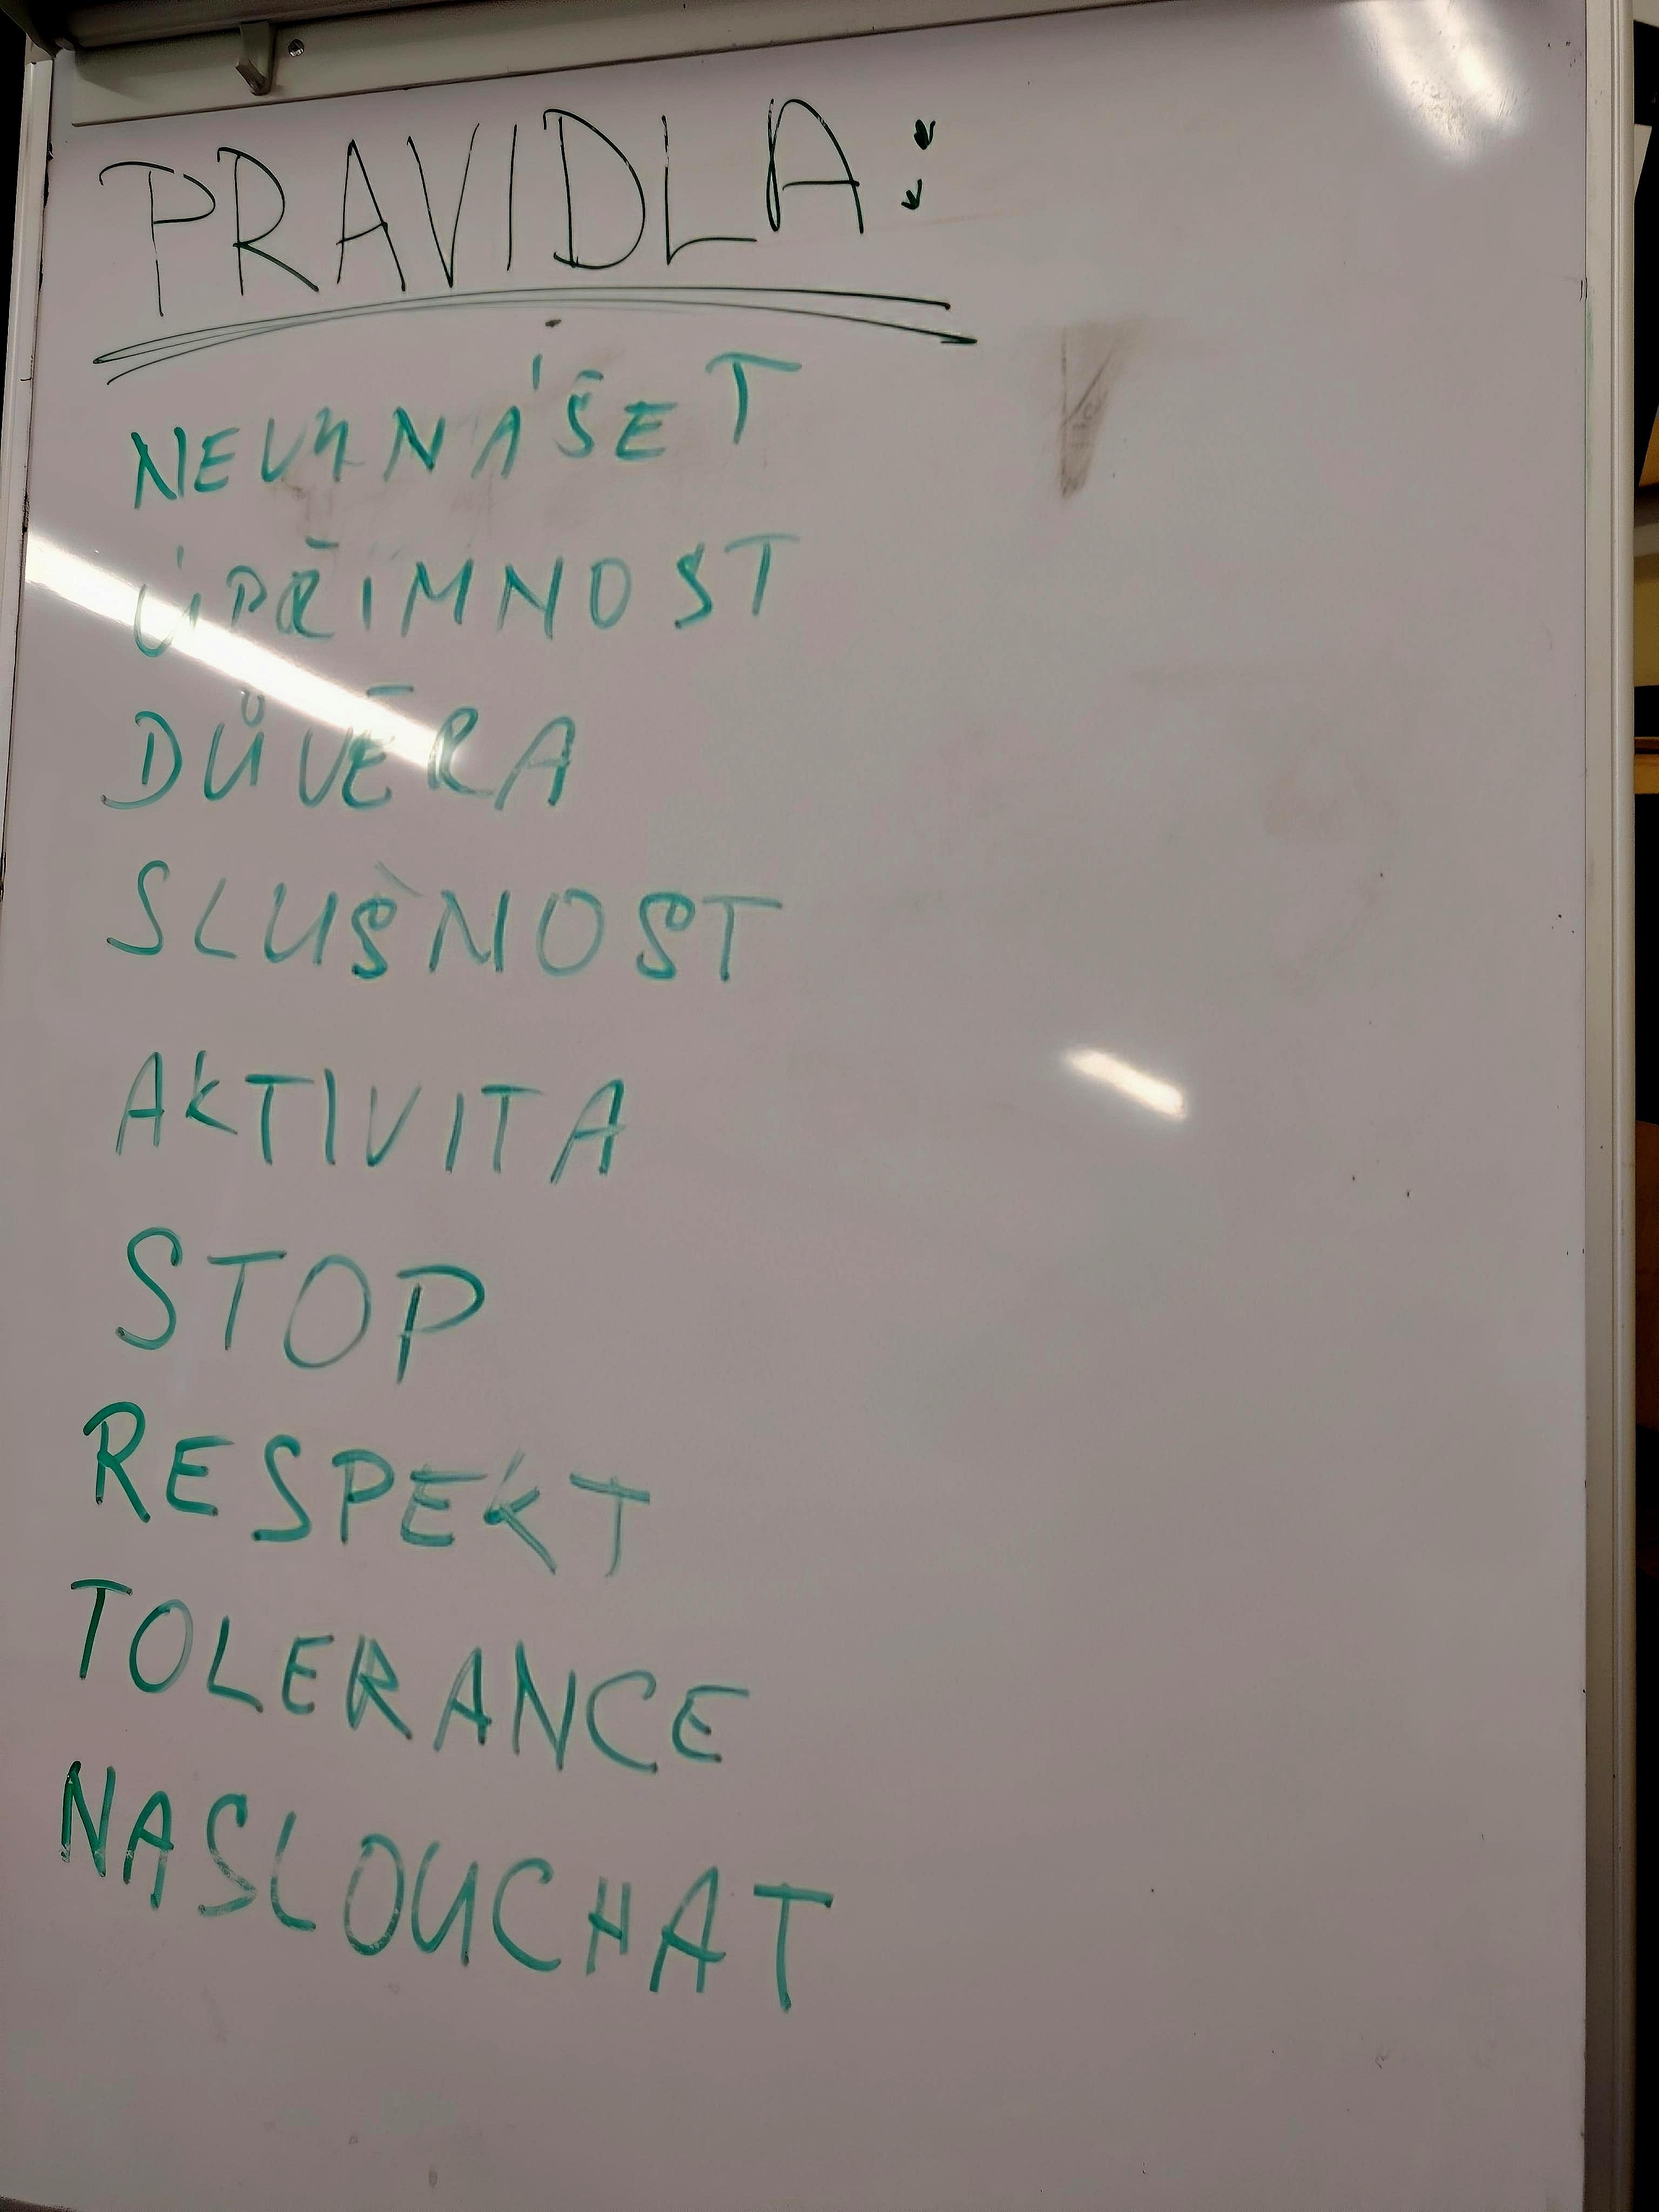 PRAVIDLA:
NEVYNÁŠET
ÚPŘIMNOST
DŮVĚRA
SLUŠNOST
AKTIVITA
STOP
RESPEKT
TOLERANCE
NASLOUCHAT